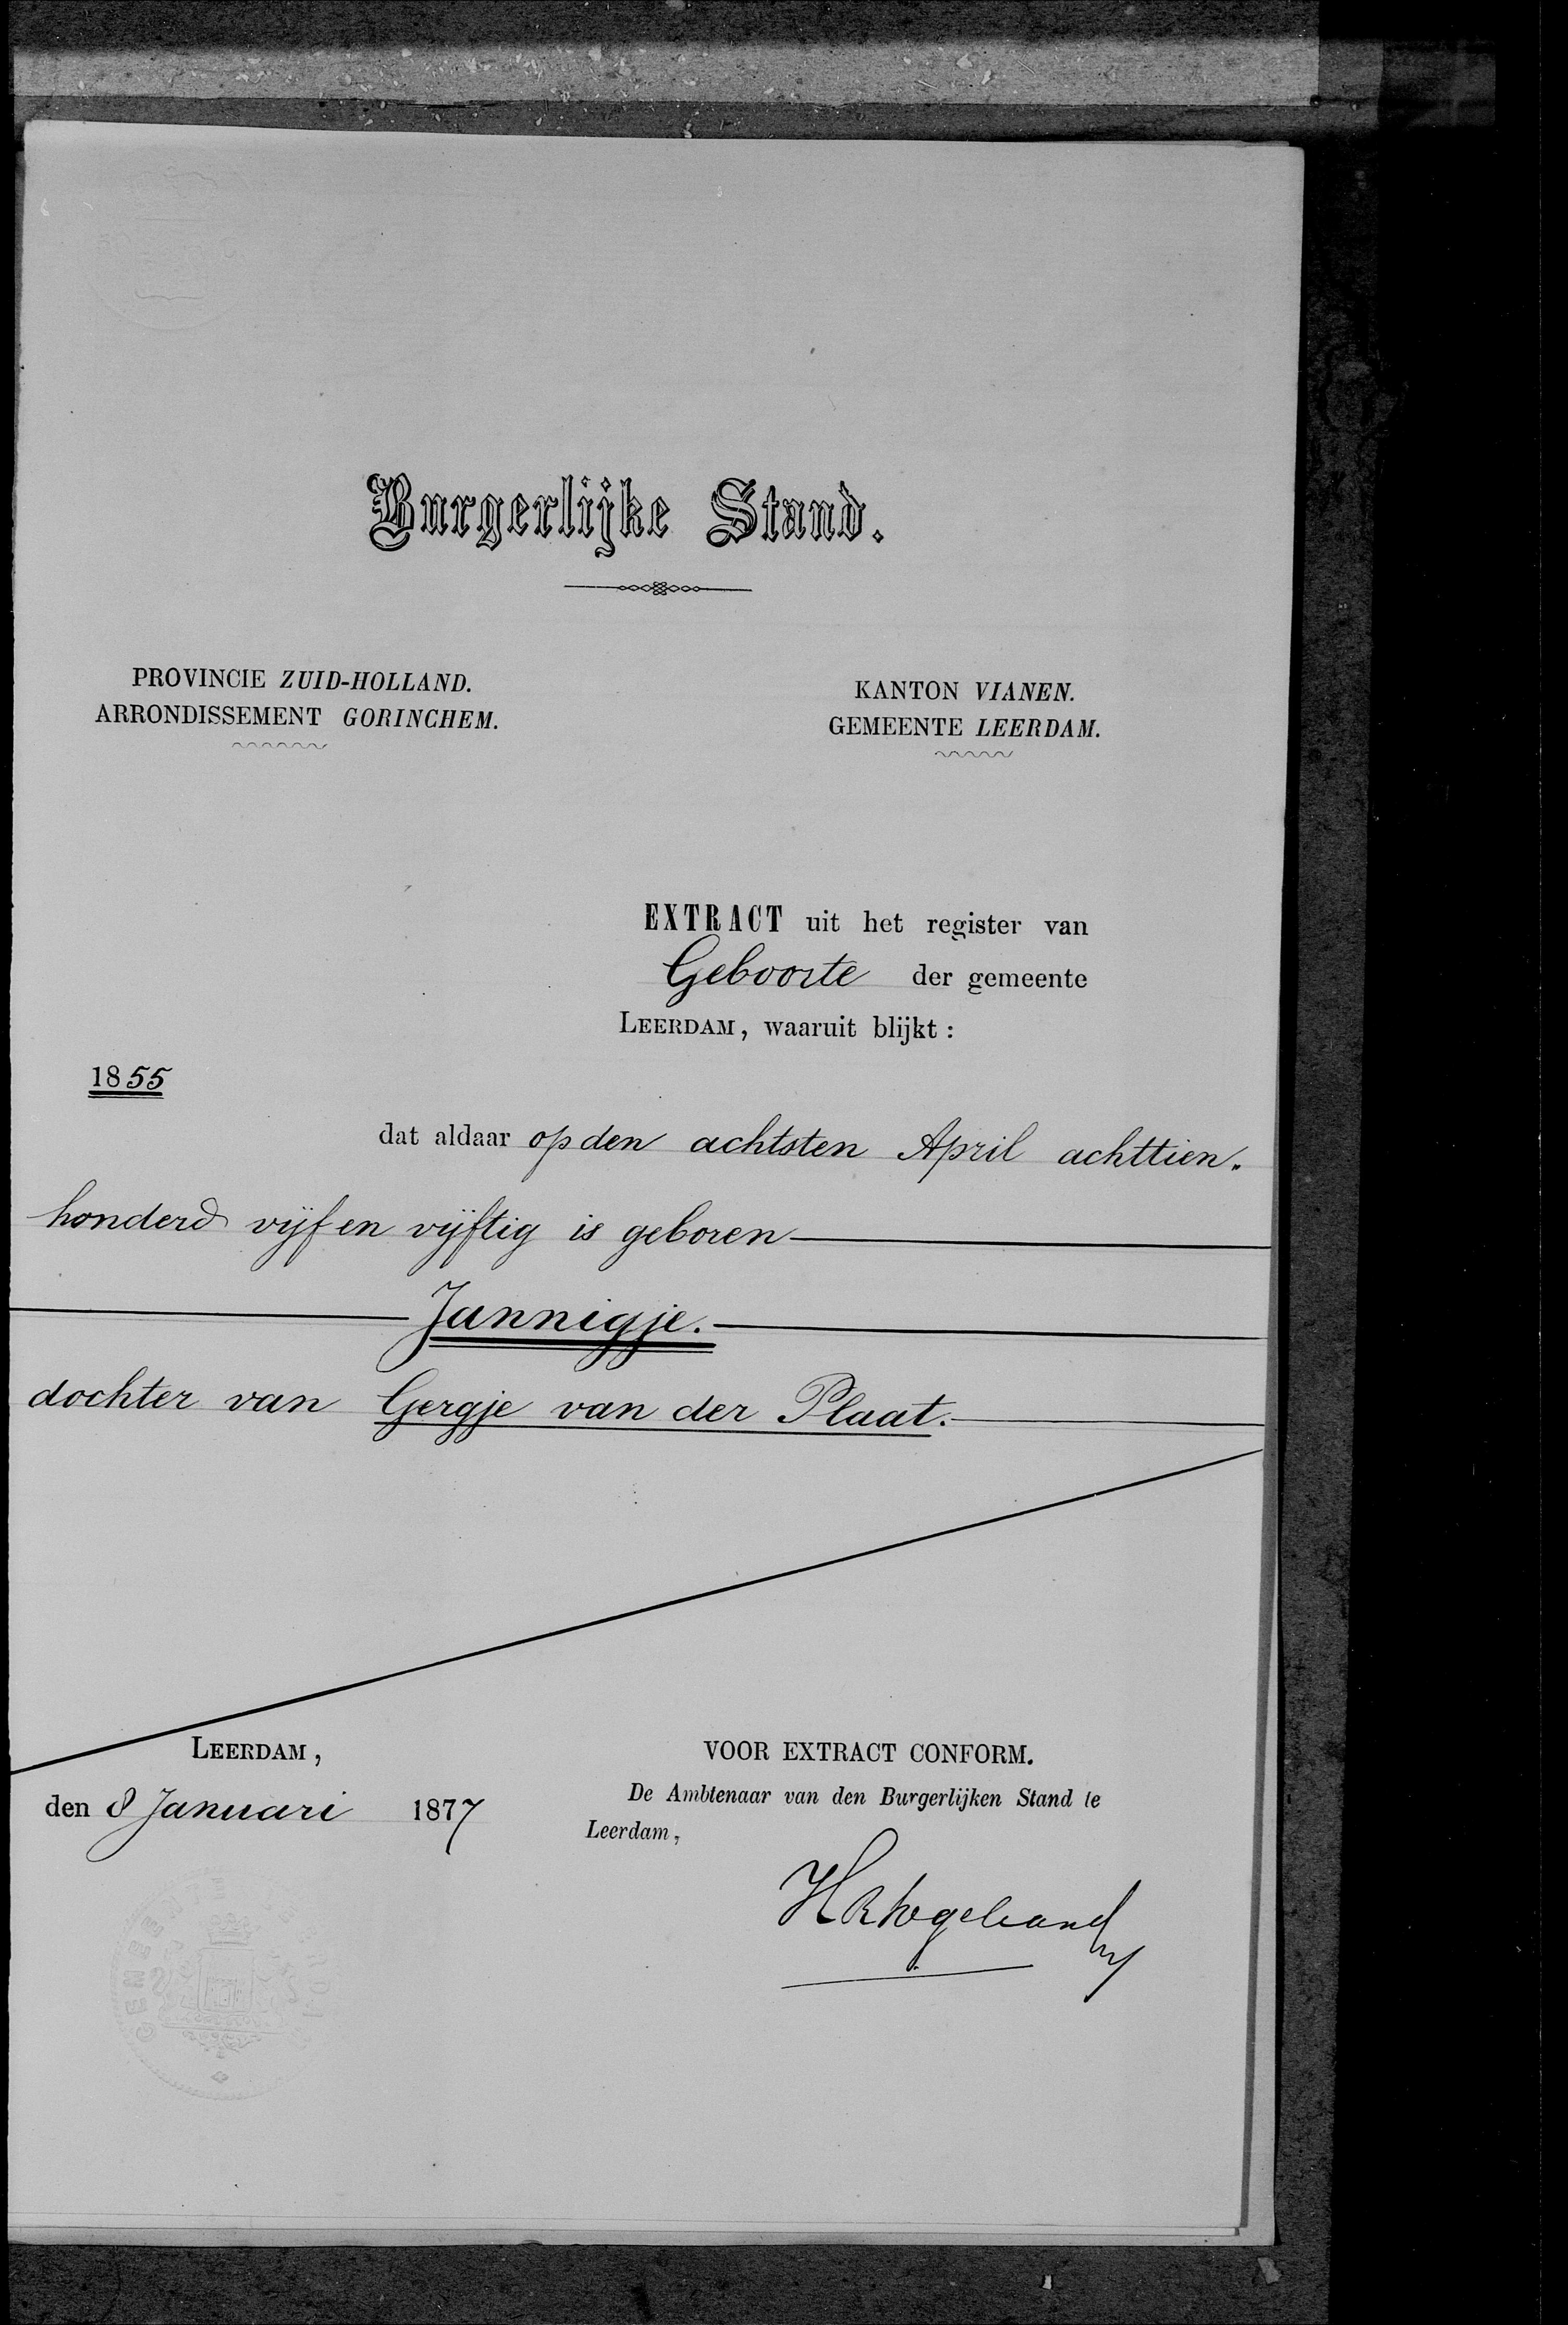 Burgerlijke Stand.
PROVINCIE ZUID-HOLLAND.
ARRONDISSEMENT GORINCHEM.
KANTON VIANEN.
GEMEENTE LEERDAM.
EXTRACT uit het register van
Geboorte der gemeente
LEERDAM, waaruit blijkt:
1855
dat aldaar op den achtsten April achttien.
honderd vijf en vijftig is geboren
Jannigje.
dochter van Gergje van der Plaat.
LEERDAM,
den 8 Januari 1877
VOOR EXTRACT CONFORM.
De Ambtenaar van den Burgerlijken Stand te
Leerdam,
GEMEE